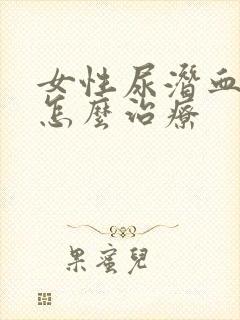 女性尿潛血
怎麼治療
果蜜兒